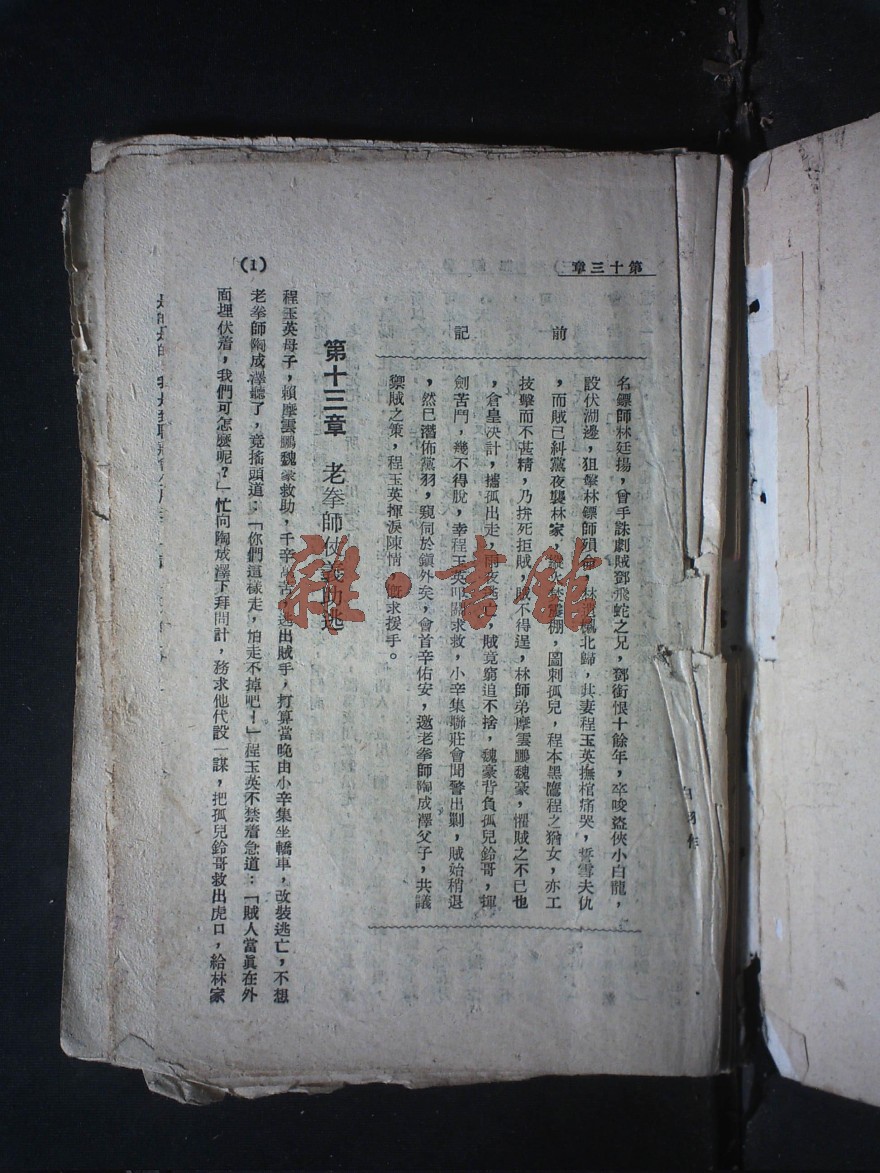 第十三章
(1)
前記
名鏢師林廷揚，會手誅劇賊鄧飛蛇之兄，鄧銜恨十餘年，卒唆盜俠小白龍，
設伏湖邊，狙擊林鏢師殞命，林北歸，其妻程玉英撫棺痛哭，誓雪夫仇
，而賊已糾黨夜襲林家，棚，圖刺孤兒，程本黑鷹程之猶女，亦工
技擊而不甚精，乃拚死拒賊，賊不得逞，林師弟摩雲鵬魏豪，懼賊之不已也
，倉皇决計，攜孤出走，雨夜逃亡，賊竟窮追不捨，魏豪背負孤兒鈴哥，揮
劍苦鬥，幾不得脫，幸程玉英叩關求救，小辛集聯莊會聞警出剿，賊始稍退
，然已潛佈黨羽，窺伺於鎭外矣，會首辛佑安，邀老拳師陶成澤父子，共議
禦賊之策，程玉英揮淚陳情，慨求援手。
第十三章　老拳師仗義助逃
程玉英母子，賴摩雲鵬魏豪救助，千辛萬苦，逃出賊手，打算當晚由小辛集坐轎車，改裝逃亡，不想
老拳師陶成澤聽了，竟搖頭道：「你們這樣走，怕走不掉吧！」程玉英不禁着急道：「賊人當眞在外
面埋伏着，我們可怎麼呢？」忙向陶成澤下拜問計，務求他代設一謀，把孤兒鈴哥救出虎口，給林家
雜·書館